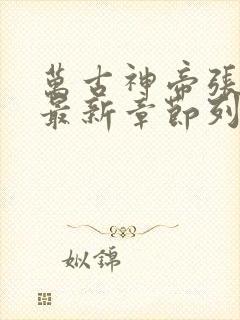 萬古神帝張
最新章節列
姒錦